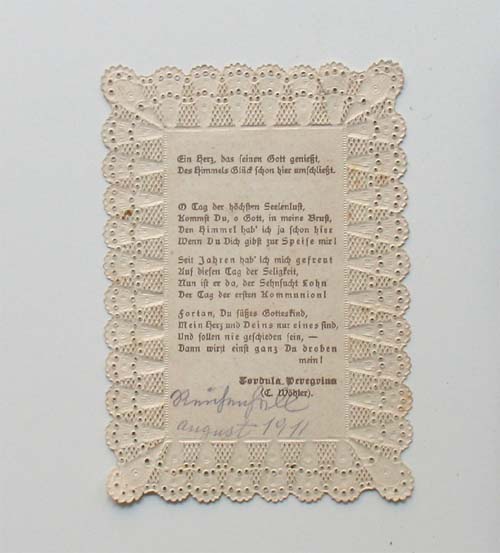 Ein Herz, das seinen Gott genießt,
Des Himmels Glück schon hier umschließt.
O Tag der höchsten Seelenlust,
Kommst Du, o Gott, in meine Brust,
Den Himmel hab' ich ja schon hier
Wenn Du Dich gibst zur Speise mir!
Seit Jahren hab' ich mich gefreut
Auf diesen Tag der Seligkeit,
Nun ist er da, der Sehnsucht Lohn
Der Tag der ersten Kommunion!
Fortan, Du süßes Gotteskind,
Mein Herz und Deins nur eines sind,
Und sollen nie geschieden sein, —
Dann wirst einst ganz Du droben
mein!
Cordula Peregrina
(C. Wöhler).
Reichenhall
August 1911